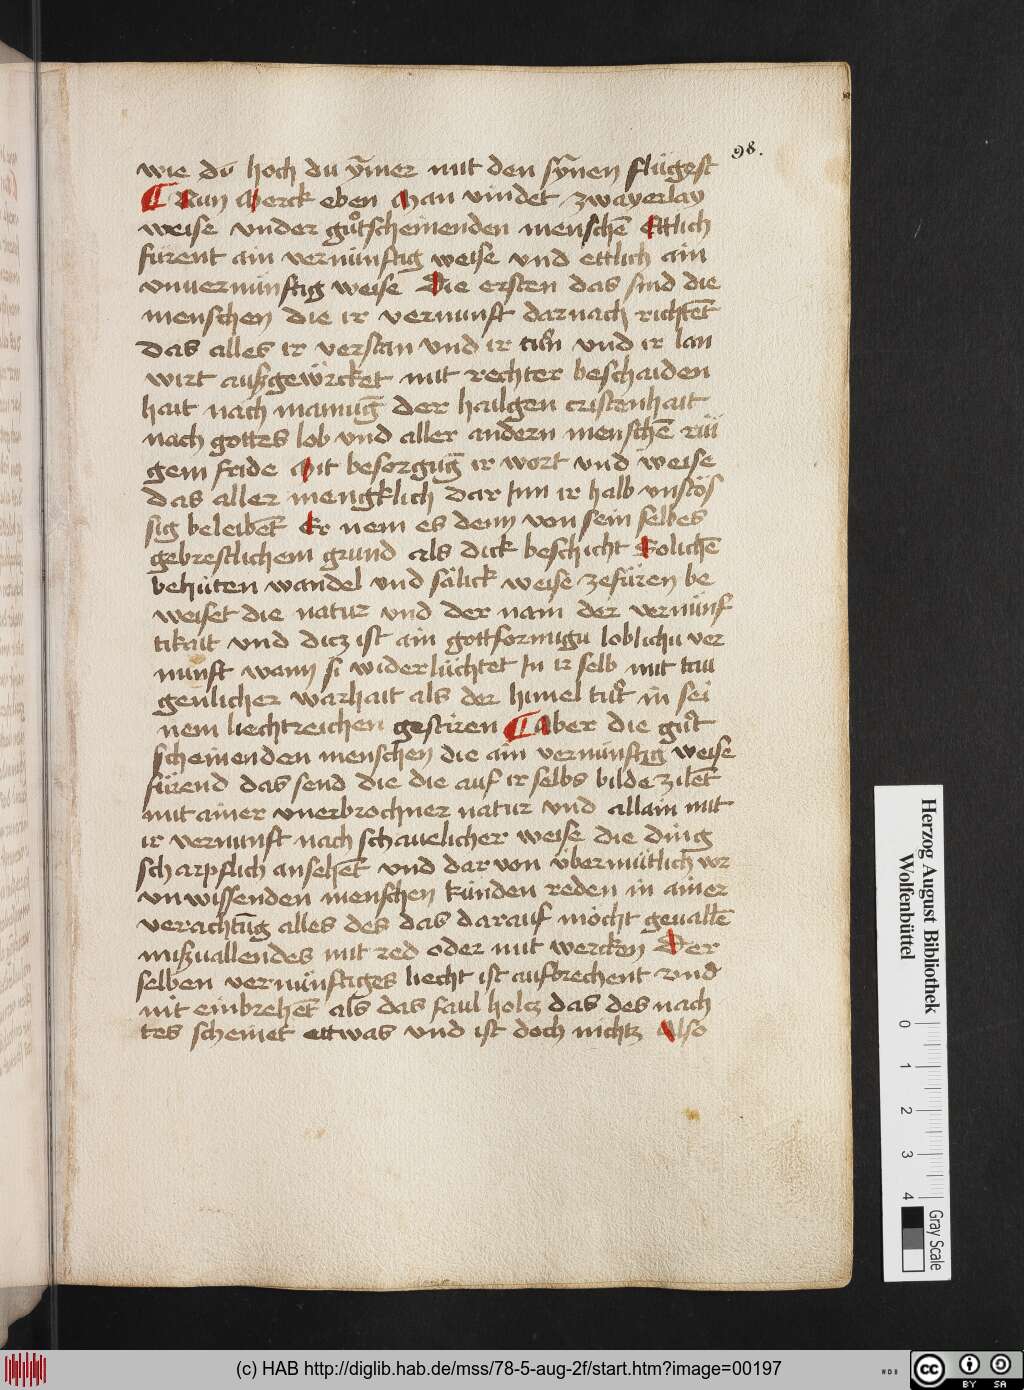 98.
wie dú hoch du ẏm̄er mit den sẏnen flúgest
¶ Nun Merck eben Man vindet zwayerlay
weise vnder gůtscheinenden menschē Ettlich
fúrent ain vernúnftig weise vnd ettlich ain
vnuernúnftig weise Die ersten das sind die
menschen die ir vernunft darnach richtēt
das alles ir verstan vnd ir tůn vnd ir lan
wirt auszgewúrcket mit rechter beschaiden
hait nach mainuḡ der hailgen cristenhait
nach gottes lob vnd aller andern menschē rúi
gem fride Mit besorguḡ ir wort vnd weise
das aller mengklich dar Inn ir halb vnstós
sig beleibēt Er nem es denn von sein selbes
gebrestlichem grund als dick beschicht Solichē
behúten wandel vnd sálick weise zefúren be
weiset die natur vnd der nam der vernúnf
tikait vnd dicz ist ain gottformigu loblichu ver
nunft wann si widerlúchtet In ir selb mit tau
genlicher warhait als der himel tůt in sei
nem liechtreichen gestiren ¶ Aber die gůt
scheinenden menschen die ain vernúnftig weise
fúrend das send die die auf ir selbs bilde zilēt
mit ainer vnerbrochner natur vnd allain mit
ir vernunft nach schauelicher weise die ding
scharpflich ansehēt vnd dar von úbermútlich vor
vnwissenden menschen kúnden reden in ainer
verachtūg alles des das darauf mócht geuallē
miszuallendes mit red oder mit wercken Der
selben vernúnftiges liecht ist aufbrechent vnd
nit einbrehēt als das faul holcz das des nach
tes scheinet ettwas vnd ist doch nichtz Also
Herzog August Bibliothek
Wolfenbüttel
0 1 2 3 4
Gray Scale
(c) HAB http://diglib.hab.de/mss/78-5-aug-2f/start.htm?image=00197
WDB
cc BY SA